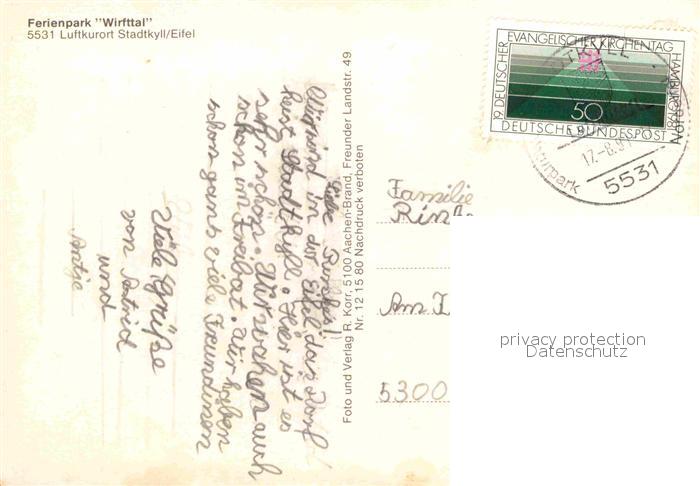 Ferienpark "Wirfttal"
5531 Luftkurort Stadtkyll/Eifel
Wir sind in der Eifel das Dorf
heist Stadtkyll. Hier ist es
sehr schön. Wir wahen auch
schon im Freibat. Wir haben
schon gans viele Freundinen
Viele Grüße
von Astrid
und
Antje
Foto und Verlag R. Korr, 5100 Aachen-Brand, Freunder Landstr. 49
Nr. 12 15 80 Nachdruck verboten
19. DEUTSCHER EVANGELISCHER KIRCHENTAG HAMBURG 1981
50
DEUTSCHE BUNDESPOST
17.-8.
5531
Familie
Am
5300
privacy protection
Datenschutz